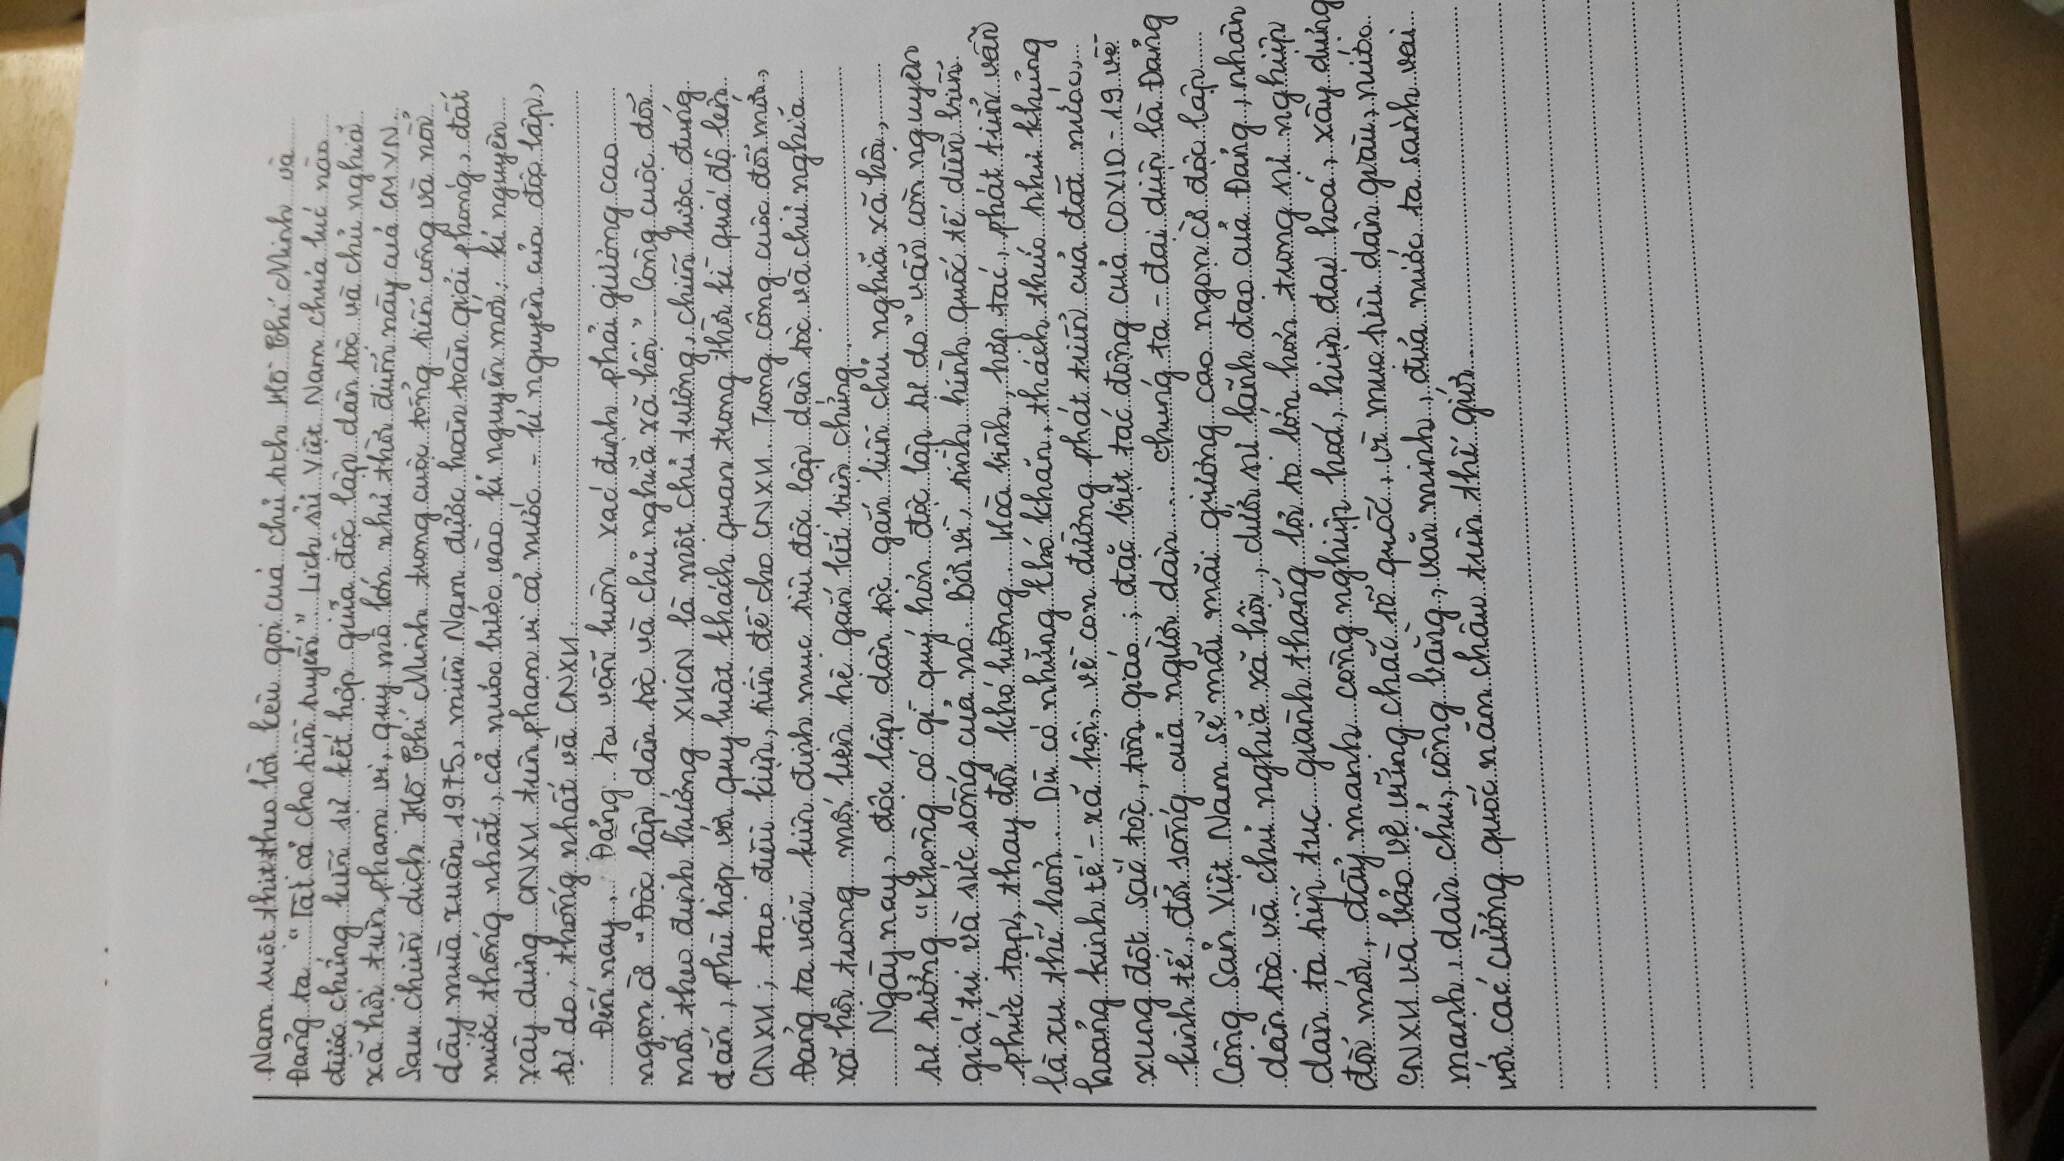 Nam ruột thịt theo lời kêu gọi của chủ tịch Hồ Chí Minh và
Đảng ta "Tất cả cho tiền tuyến". Lịch sử Việt Nam chưa lúc nào
được chứng kiến sự kết hợp giữa độc lập dân tộc và chủ nghĩa
xã hội trên phạm vi, quy mô lớn như thời điểm này của CMVN.
Sau chiến dịch Hồ Chí Minh trong cuộc tổng tiến công và nổi
dậy mùa xuân 1975, miền Nam được hoàn toàn giải phóng, đất
nước thống nhất, cả nước bước vào kỉ nguyên mới: kỉ nguyên
xây dựng CNXH trên phạm vi cả nước - kỉ nguyên của độc lập,
tự do, thống nhất và CNXH.
Đến nay, Đảng ta vẫn luôn xác định phải giương cao
ngọn cờ "Độc lập dân tộc và chủ nghĩa xã hội". Công cuộc đổi
mới theo định hướng XHCN là một chủ trương, chiến lược đúng
đắn, phù hợp với quy luật khách quan trong thời kì quá độ lên
CNXH; tạo điều kiện, tiền đề cho CNXH. Trong công cuộc đổi mới,
Đảng ta vẫn kiên định mục tiêu độc lập dân tộc và chủ nghĩa
xã hội trong mối liên hệ gắn kết biện chứng.
Ngày nay, độc lập dân tộc gắn liền chủ nghĩa xã hội,
tư tưởng "Không có gì quý hơn độc lập tự do" vẫn còn nguyên
giá trị và sức sống của nó. Bởi vì, tình hình quốc tế diễn biến
phức tạp, thay đổi khó lường. Hoà bình, hợp tác, phát triển vẫn
là xu thế hơn. Dù có những khó khăn, thách thức như khủng
hoảng kinh tế - xã hội, về con đường phát triển của đất nước,
xung đột sắc tộc, tôn giáo; đặc biệt tác động của COVID-19 về
kinh tế, đời sống của người dân... chúng ta - đại diện là Đảng
Cộng Sản Việt Nam sẽ mãi mãi giương cao ngọn cờ độc lập
dân tộc và chủ nghĩa xã hội, dưới sự lãnh đạo của Đảng, nhân
dân ta tiếp tục giành thắng lợi to lớn hơn trong sự nghiệp
đổi mới, đẩy mạnh công nghiệp hoá, hiện đại hoá, xây dựng
CNXH và bảo vệ vững chắc tổ quốc, vì mục tiêu dân giàu, nước
mạnh, dân chủ, công bằng, văn minh, đưa nước ta sánh vai
với các cường quốc năm châu trên thế giới.